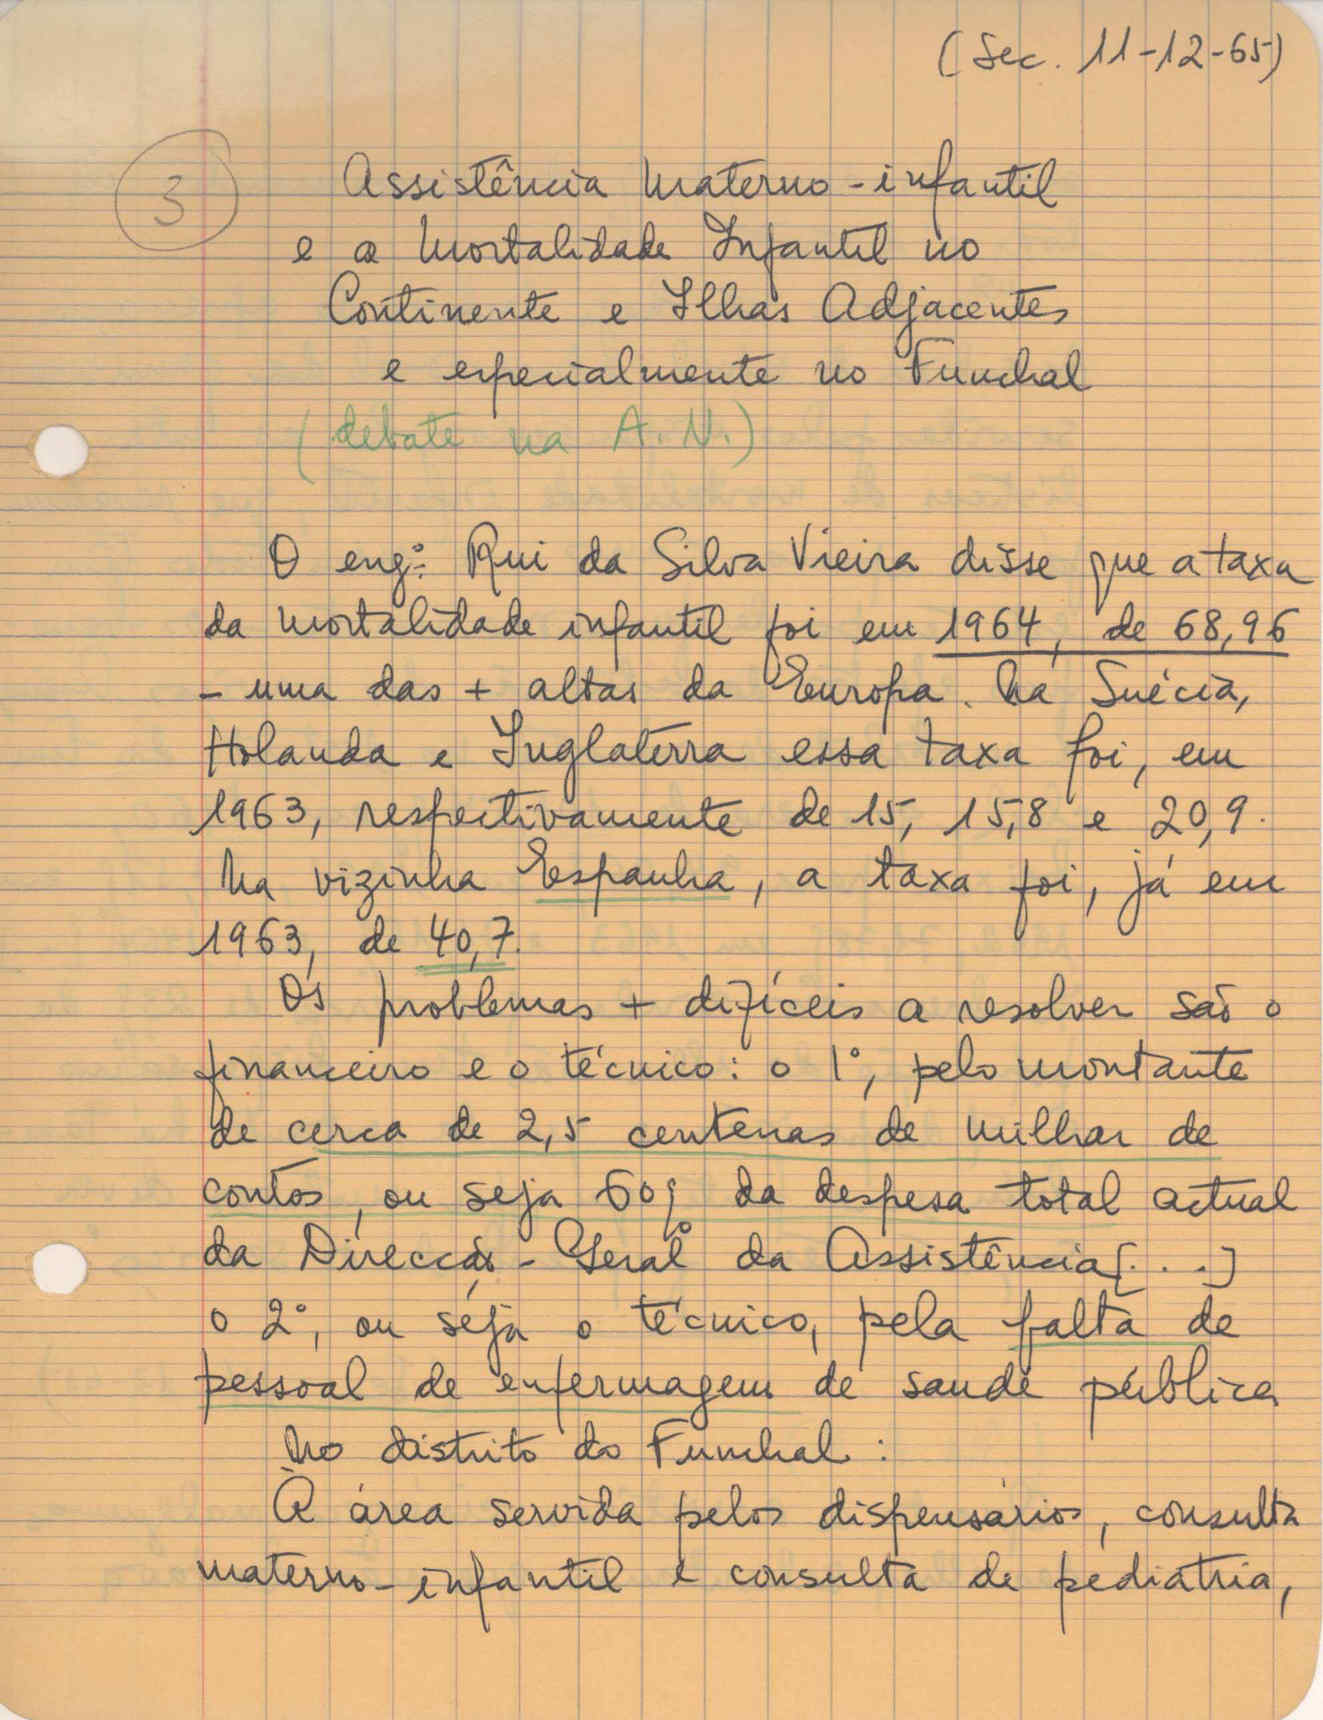 (Sec. 11-12-65)
3
Assistência Materno-infantil
e a Mortalidade Infantil no
Continente e Ilhas Adjacentes
e especialmente no Funchal
(debate na A. N.)
O eng.º Rui da Silva Vieira disse que a taxa
da mortalidade infantil foi em 1964, de 68,96
- uma das + altas da Europa. Na Suécia,
Holanda e Inglaterra essa taxa foi, em
1963, respectivamente de 15, 15,8 e 20,9.
Na vizinha Espanha, a taxa foi, já em
1963, de 40,7.
Os problemas + difíceis a resolver são o
financeiro e o técnico: o 1º, pelo montante
de cerca de 2,5 centenas de milhar de
contos, ou seja 60% da despesa total actual
da Direcção-Geral da Assistência [...]
o 2º, ou seja o técnico, pela falta de
pessoal de enfermagem de saúde pública
No distrito do Funchal:
A área servida pelos dispensários, consulta
materno-infantil e consulta de pediatria,